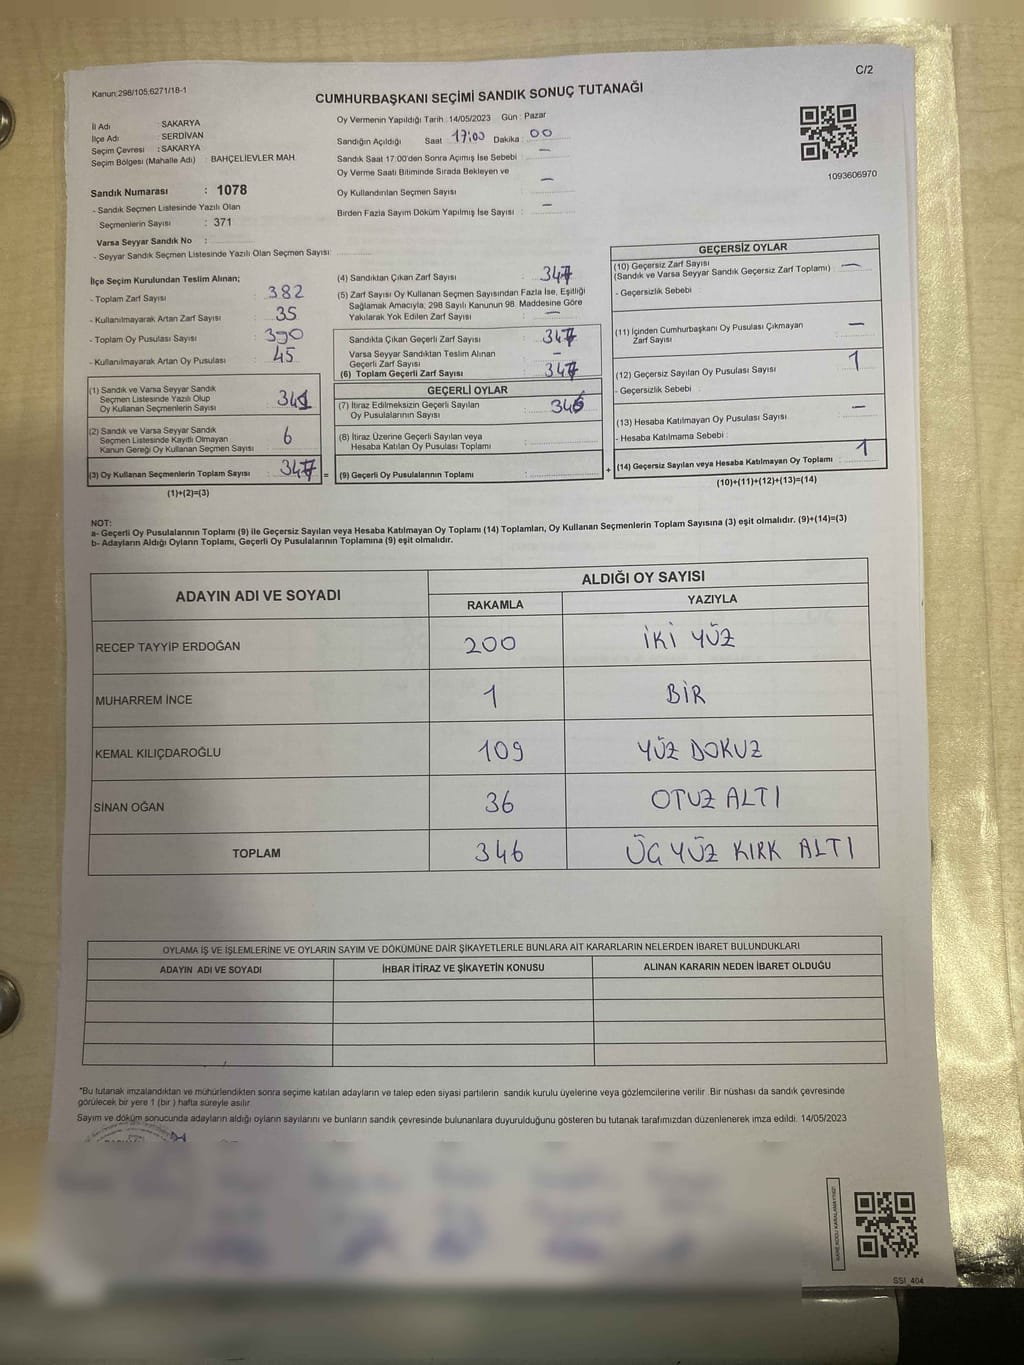 C/2
Kanun:298/105,6271/18-1
CUMHURBAŞKANI SEÇİMİ SANDIK SONUÇ TUTANAĞI
İl Adı : SAKARYA
İlçe Adı : SERDİVAN
Seçim Çevresi : SAKARYA
Seçim Bölgesi (Mahalle Adı) : BAHÇELİEVLER MAH.
Sandık Numarası : 1078
- Sandık Seçmen Listesinde Yazılı Olan
Seçmenlerin Sayısı : 371
Varsa Seyyar Sandık No :
- Seyyar Sandık Seçmen Listesinde Yazılı Olan Seçmen Sayısı:
Oy Vermenin Yapıldığı Tarih : 14/05/2023 Gün : Pazar
Sandığın Açıldığı Saat 17:00 Dakika : 00
Sandık Saat 17:00'den Sonra Açımış İse Sebebi : —
Oy Verme Saati Bitiminde Sırada Bekleyen ve
Oy Kullandırılan Seçmen Sayısı —
Birden Fazla Sayım Döküm Yapılmış İse Sayısı : —
1093606970
İlçe Seçim Kurulundan Teslim Alınan;
- Toplam Zarf Sayısı : 382
- Kullanılmayarak Artan Zarf Sayısı : 35
- Toplam Oy Pusulası Sayısı : 390
- Kullanılmayarak Artan Oy Pusulası : 45
(1) Sandık ve Varsa Seyyar Sandık
Seçmen Listesinde Yazılı Olup
Oy Kullanan Seçmenlerin Sayısı : 341
(2) Sandık ve Varsa Seyyar Sandık
Seçmen Listesinde Kayıtlı Olmayan
Kanun Gereği Oy Kullanan Seçmen Sayısı : 6
(3) Oy Kullanan Seçmenlerin Toplam Sayısı : 347 =
(1)+(2)=(3)
(4) Sandıktan Çıkan Zarf Sayısı : 347
(5) Zarf Sayısı Oy Kullanan Seçmen Sayısından Fazla İse, Eşitliği
Sağlamak Amacıyla, 298 Sayılı Kanunun 98. Maddesine Göre
Yakılarak Yok Edilen Zarf Sayısı : —
Sandıkta Çıkan Geçerli Zarf Sayısı : 347
Varsa Seyyar Sandıktan Teslim Alınan
Geçerli Zarf Sayısı : —
(6) Toplam Geçerli Zarf Sayısı : 347
GEÇERLİ OYLAR
(7) İtiraz Edilmeksizin Geçerli Sayılan
Oy Pusulalarının Sayısı : 346
(8) İtiraz Üzerine Geçerli Sayılan veya
Hesaba Katılan Oy Pusulası Toplamı :
(9) Geçerli Oy Pusulalarının Toplamı : +
GEÇERSİZ OYLAR
(10) Geçersiz Zarf Sayısı
(Sandık ve Varsa Seyyar Sandık Geçersiz Zarf Toplamı) : —
- Geçersizlik Sebebi :
(11) İçinden Cumhurbaşkanı Oy Pusulası Çıkmayan
Zarf Sayısı : —
(12) Geçersiz Sayılan Oy Pusulası Sayısı : 1
- Geçersizlik Sebebi :
(13) Hesaba Katılmayan Oy Pusulası Sayısı : —
- Hesaba Katılmama Sebebi :
(14) Geçersiz Sayılan veya Hesaba Katılmayan Oy Toplamı : 1
(10)+(11)+(12)+(13)=(14)
NOT:
a- Geçerli Oy Pusulalarının Toplamı (9) ile Geçersiz Sayılan veya Hesaba Katılmayan Oy Toplamı (14) Toplamları, Oy Kullanan Seçmenlerin Toplam Sayısına (3) eşit olmalıdır. (9)+(14)=(3)
b- Adayların Aldığı Oyların Toplamı, Geçerli Oy Pusulalarının Toplamına (9) eşit olmalıdır.
ADAYIN ADI VE SOYADI ALDIĞI OY SAYISI
RAKAMLA YAZIYLA
RECEP TAYYİP ERDOĞAN 200 İKİ YÜZ
MUHARREM İNCE 1 BİR
KEMAL KILIÇDAROĞLU 109 YÜZ DOKUZ
SİNAN OĞAN 36 OTUZ ALTI
TOPLAM 346 ÜÇ YÜZ KIRK ALTI
OYLAMA İŞ VE İŞLEMLERİNE VE OYLARIN SAYIM VE DÖKÜMÜNE DAİR ŞİKAYETLERLE BUNLARA AİT KARARLARIN NELERDEN İBARET BULUNDUKLARI
ADAYIN ADI VE SOYADI İHBAR İTİRAZ VE ŞİKAYETİN KONUSU ALINAN KARARIN NEDEN İBARET OLDUĞU
"Bu tutanak imzalandıktan ve mühürlendikten sonra seçime katılan adayların ve talep eden siyasi partilerin sandık kurulu üyelerine veya gözlemcilerine verilir. Bir nüshası da sandık çevresinde
görülecek bir yere 1 (bir ) hafta süreyle asılır.
Sayım ve döküm sonucunda adayların aldığı oyların sayılarını ve bunların sandık çevresinde bulunanlara duyurulduğunu gösteren bu tutanak tarafımızdan düzenlenerek imza edildi. 14/05/2023
KARE KODU KARALAMAYINIZ!
SSİ_404